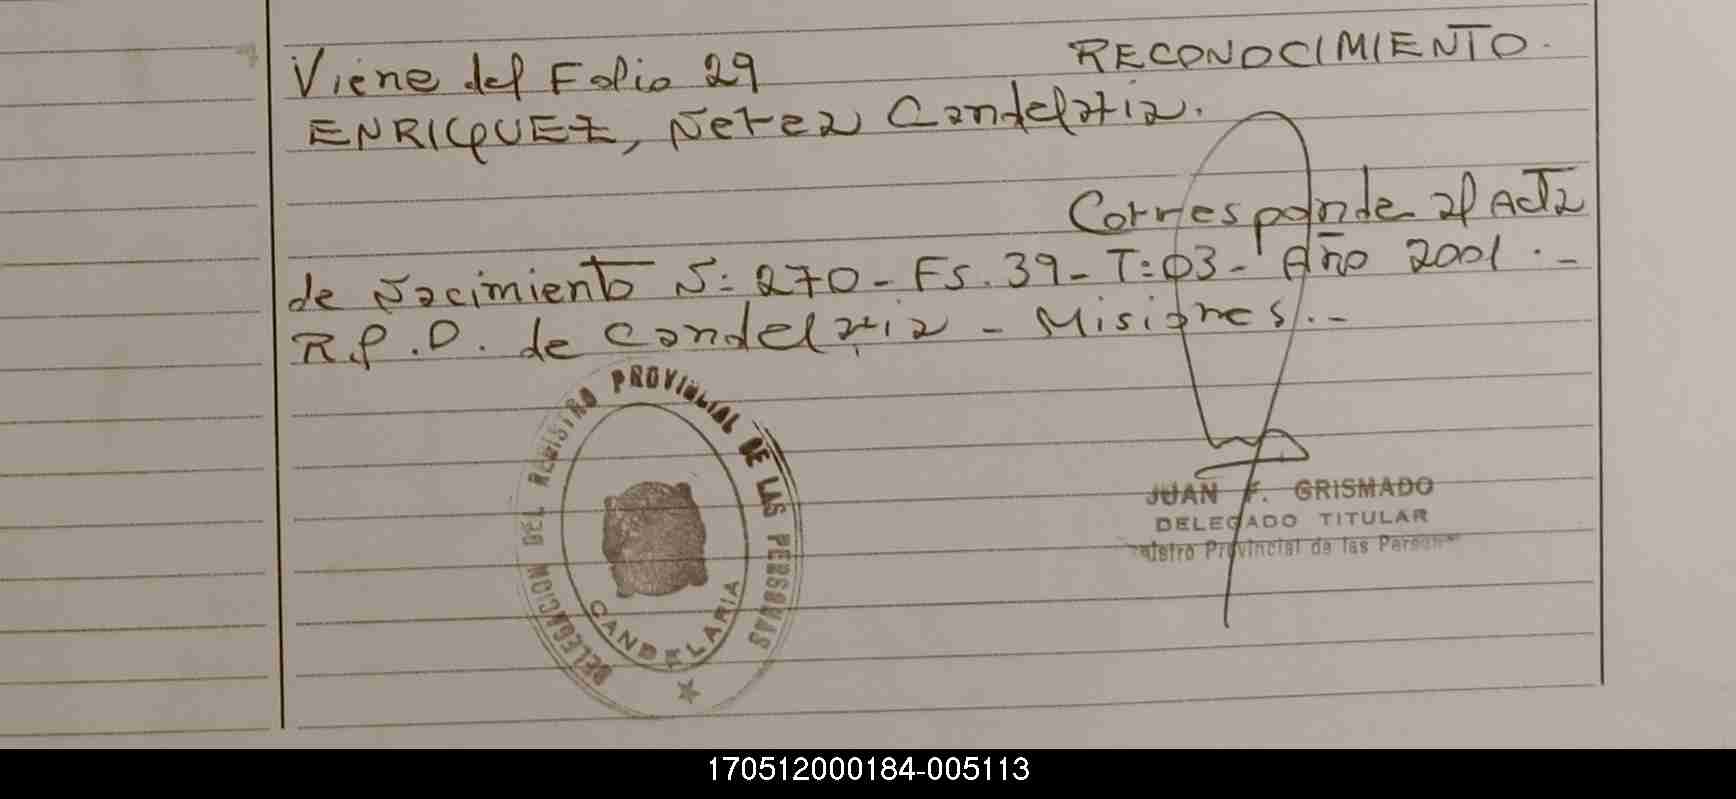 Viene del Folio 29 RECONOCIMIENTO.
ENRIQUEZ, Nerea Candelaria.
Corresponde al Acta
de Nacimiento N: 270 - Fs. 39 - T: 03 - Año 2001 . -
R.P.D. de Candelaria - Misiones. -
DELEGACION DEL REGISTRO PROVINCIAL DE LAS PERSONAS
CANDELARIA
JUAN F. GRISMADO
DELEGADO TITULAR
Provincial de las
170512000184-005113